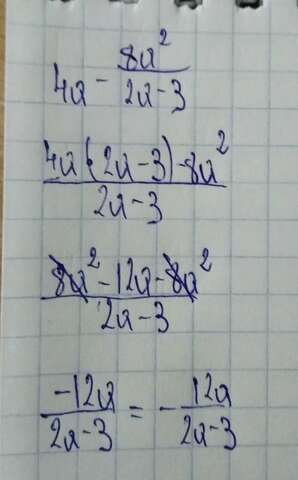 4a - 8a²/(2a-3)
(4a(2a-3)-8a²)/(2a-3)
(8a²-12a-8a²)/(2a-3)
-12a/(2a-3) = - 12a/(2a-3)